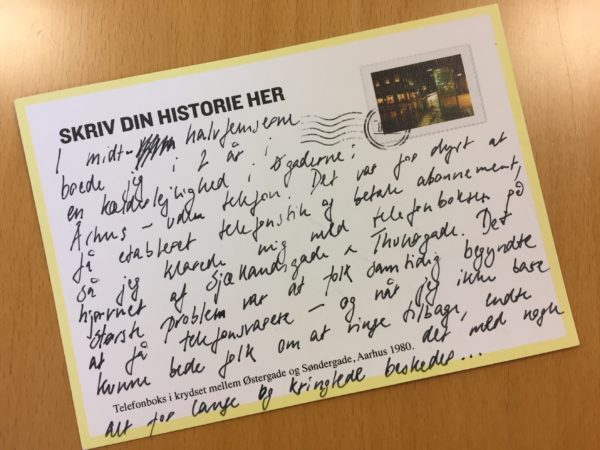 SKRIV DIN HISTORIE HER
I midt- halvfemserne
boede jeg i 2 år i
en kælderlejlighed i Øgaderne i
Århus – uden telefon. Det var for dyrt at
få etableret telefonstik og betale abonnement,
så jeg klarede mig med telefonboksen på
hjørnet af Sjællandsgade & Thunøgade. Det
største problem var at folk samtidig begyndte
at få telefonsvarere – og når jeg ikke bare
kunne bede folk om at ringe tilbage, endte
det med nogle
Telefonboks i krydset mellem Østergade og Søndergade, Aarhus 1980.
alt for lange og kringlede beskeder...